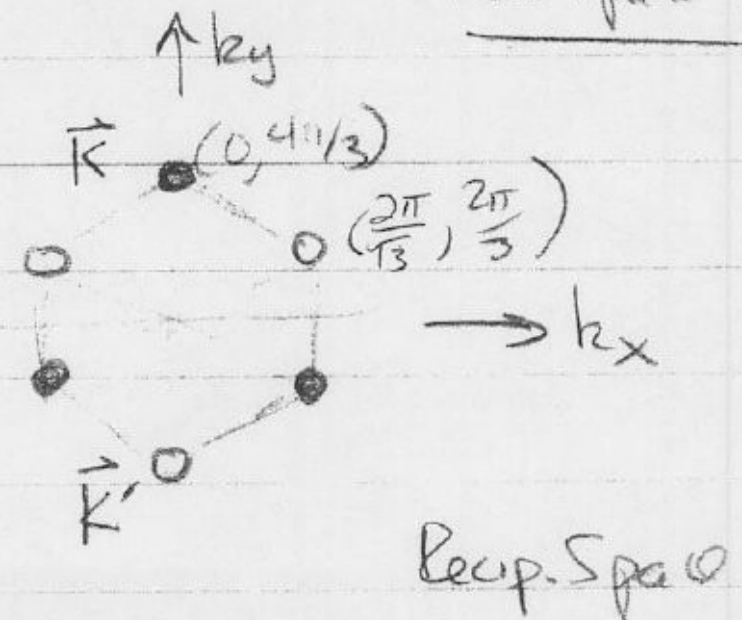 ky
K⃗ (0, 4π/3)
(2π/√3, 2π/3)
kx
K⃗′
Recip. Space